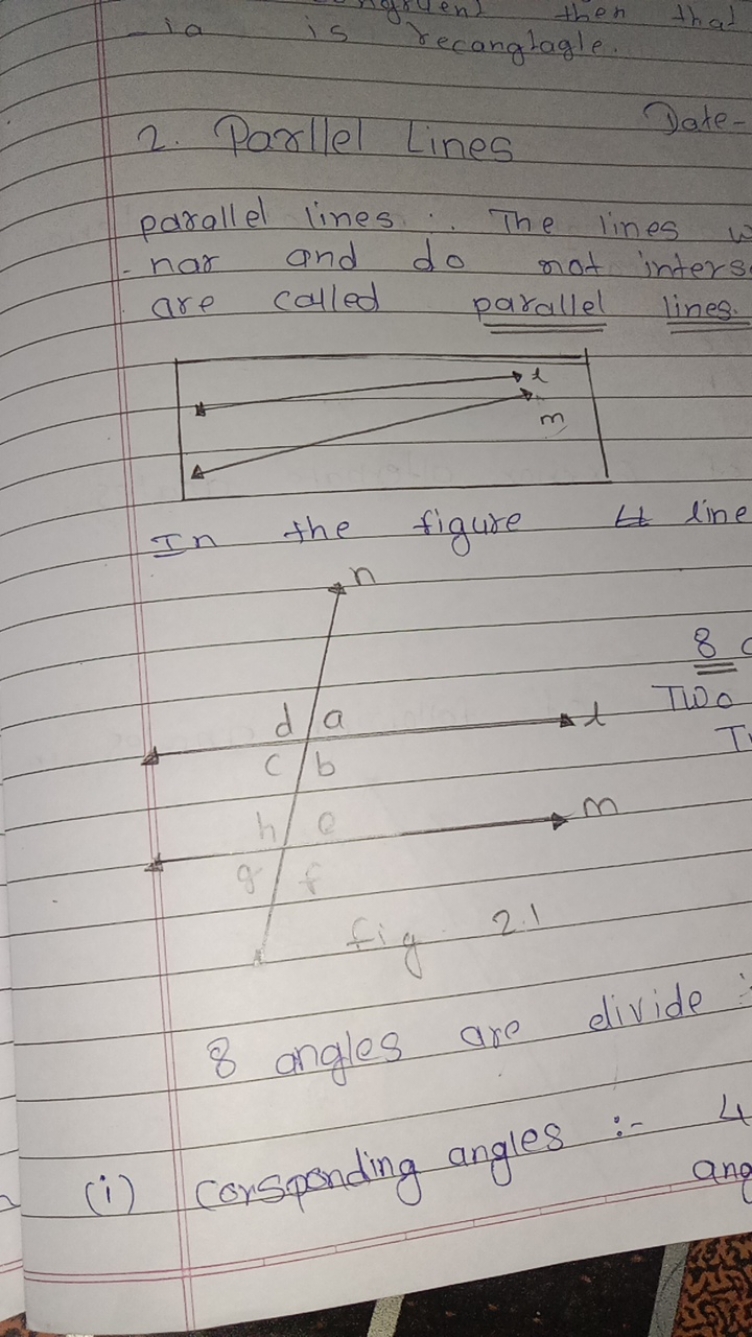 then that
is recanglagle.
Date-
2. Parllel Lines
parallel lines :. The lines
- nar and do not inters
are called parallel lines.
l
m
In the figure line
n
8
d a
l
TWO
c b
m
h e
g f
fig 2.1
8 angles are divide :
(i) corsponding angles :- 4
ang